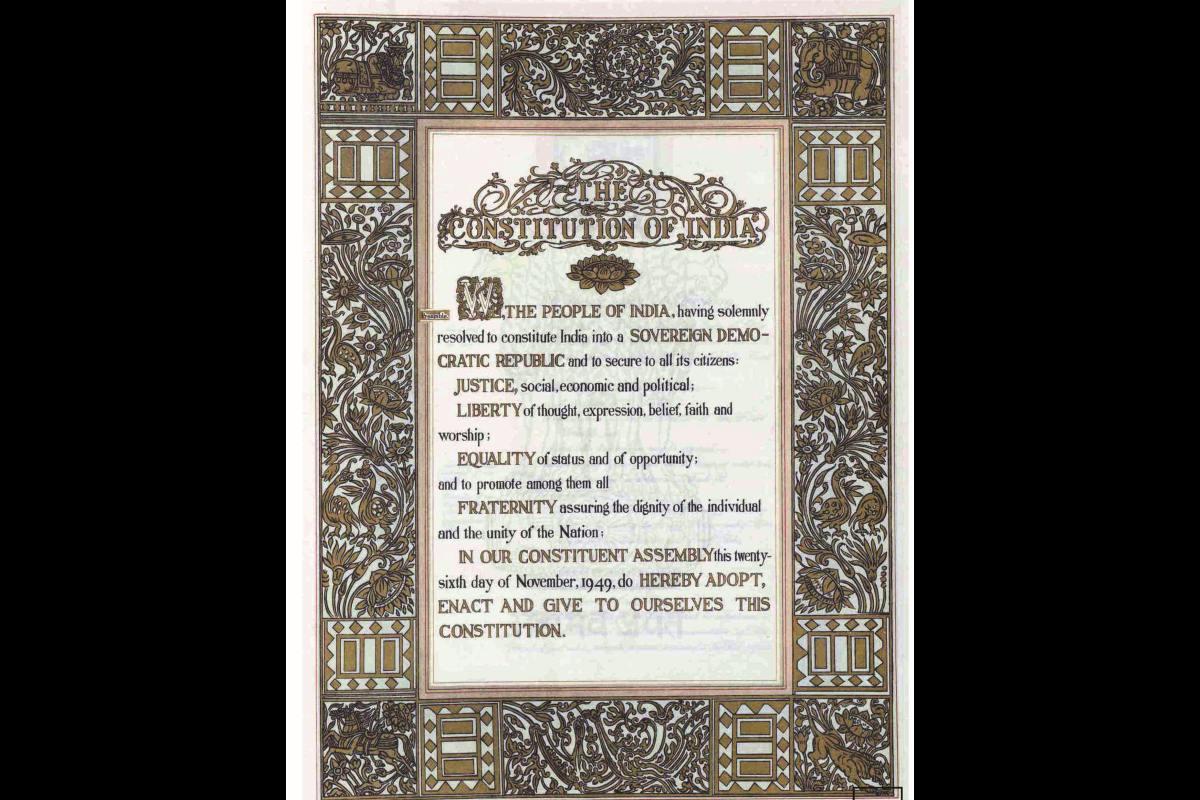 THE
CONSTITUTION OF INDIA
Preamble.
WE, THE PEOPLE OF INDIA, having solemnly
resolved to constitute India into a SOVEREIGN DEMO-
CRATIC REPUBLIC and to secure to all its citizens:
JUSTICE, social, economic and political;
LIBERTY of thought, expression, belief, faith and
worship;
EQUALITY of status and of opportunity;
and to promote among them all
FRATERNITY assuring the dignity of the individual
and the unity of the Nation;
IN OUR CONSTITUENT ASSEMBLY this twenty-
sixth day of November, 1949, do HEREBY ADOPT,
ENACT AND GIVE TO OURSELVES THIS
CONSTITUTION.